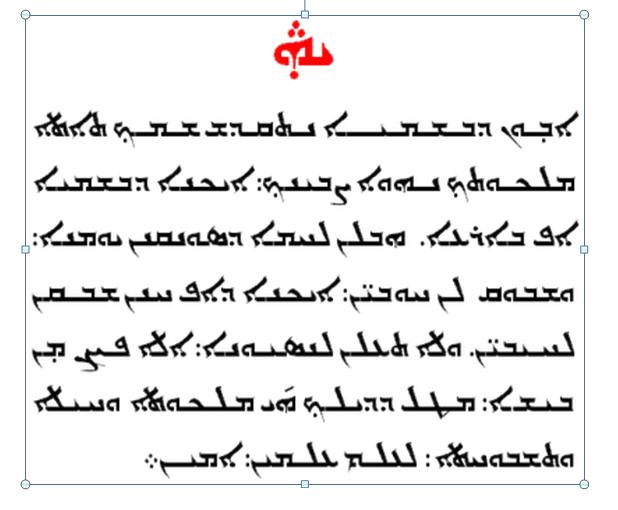 ܐܒܘܢ ܕܒܫܡܝܐ ܢܬܩܕܫ ܫܡܟ ܬܐܬܐ
ܡܠܟܘܬܟ ܢܗܘܐ ܨܒܝܢܟ: ܐܝܟܢܐ ܕܒܫܡܝܐ
ܐܦ ܒܐܪܥܐ. ܗܒܠܢ ܠܚܡܐ ܕܣܘܢܩܢܢ ܝܘܡܢܐ:
ܘܫܒܘܩ ܠܢ ܚܘܒܝ̈ܢ: ܐܝܟܢܐ ܕܐܦ ܚܢܢ ܫܒܩܢ
ܠܚܝܒܝ̈ܢ. ܘܠܐ ܬܥܠܢ ܠܢܣܝܘܢܐ: ܐܠܐ ܦܨܢ ܡܢ
ܒܝܫܐ: ܡܛܠ ܕܕܝܠܟ ܗܝ ܡܠܟܘܬܐ ܘܚܝܠܐ
ܘܬܫܒܘܚܬܐ: ܠܥܠܡ ܥܠܡܝܢ: ܐܡܝܢ܀